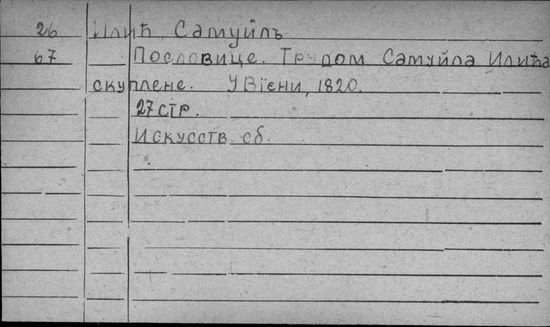 26 Илић, Самуйлъ
67 Пословице. Трудом Самуйла Илића
скуплене. У Вїени, 1820.
27 стр.
Искусств. сб.